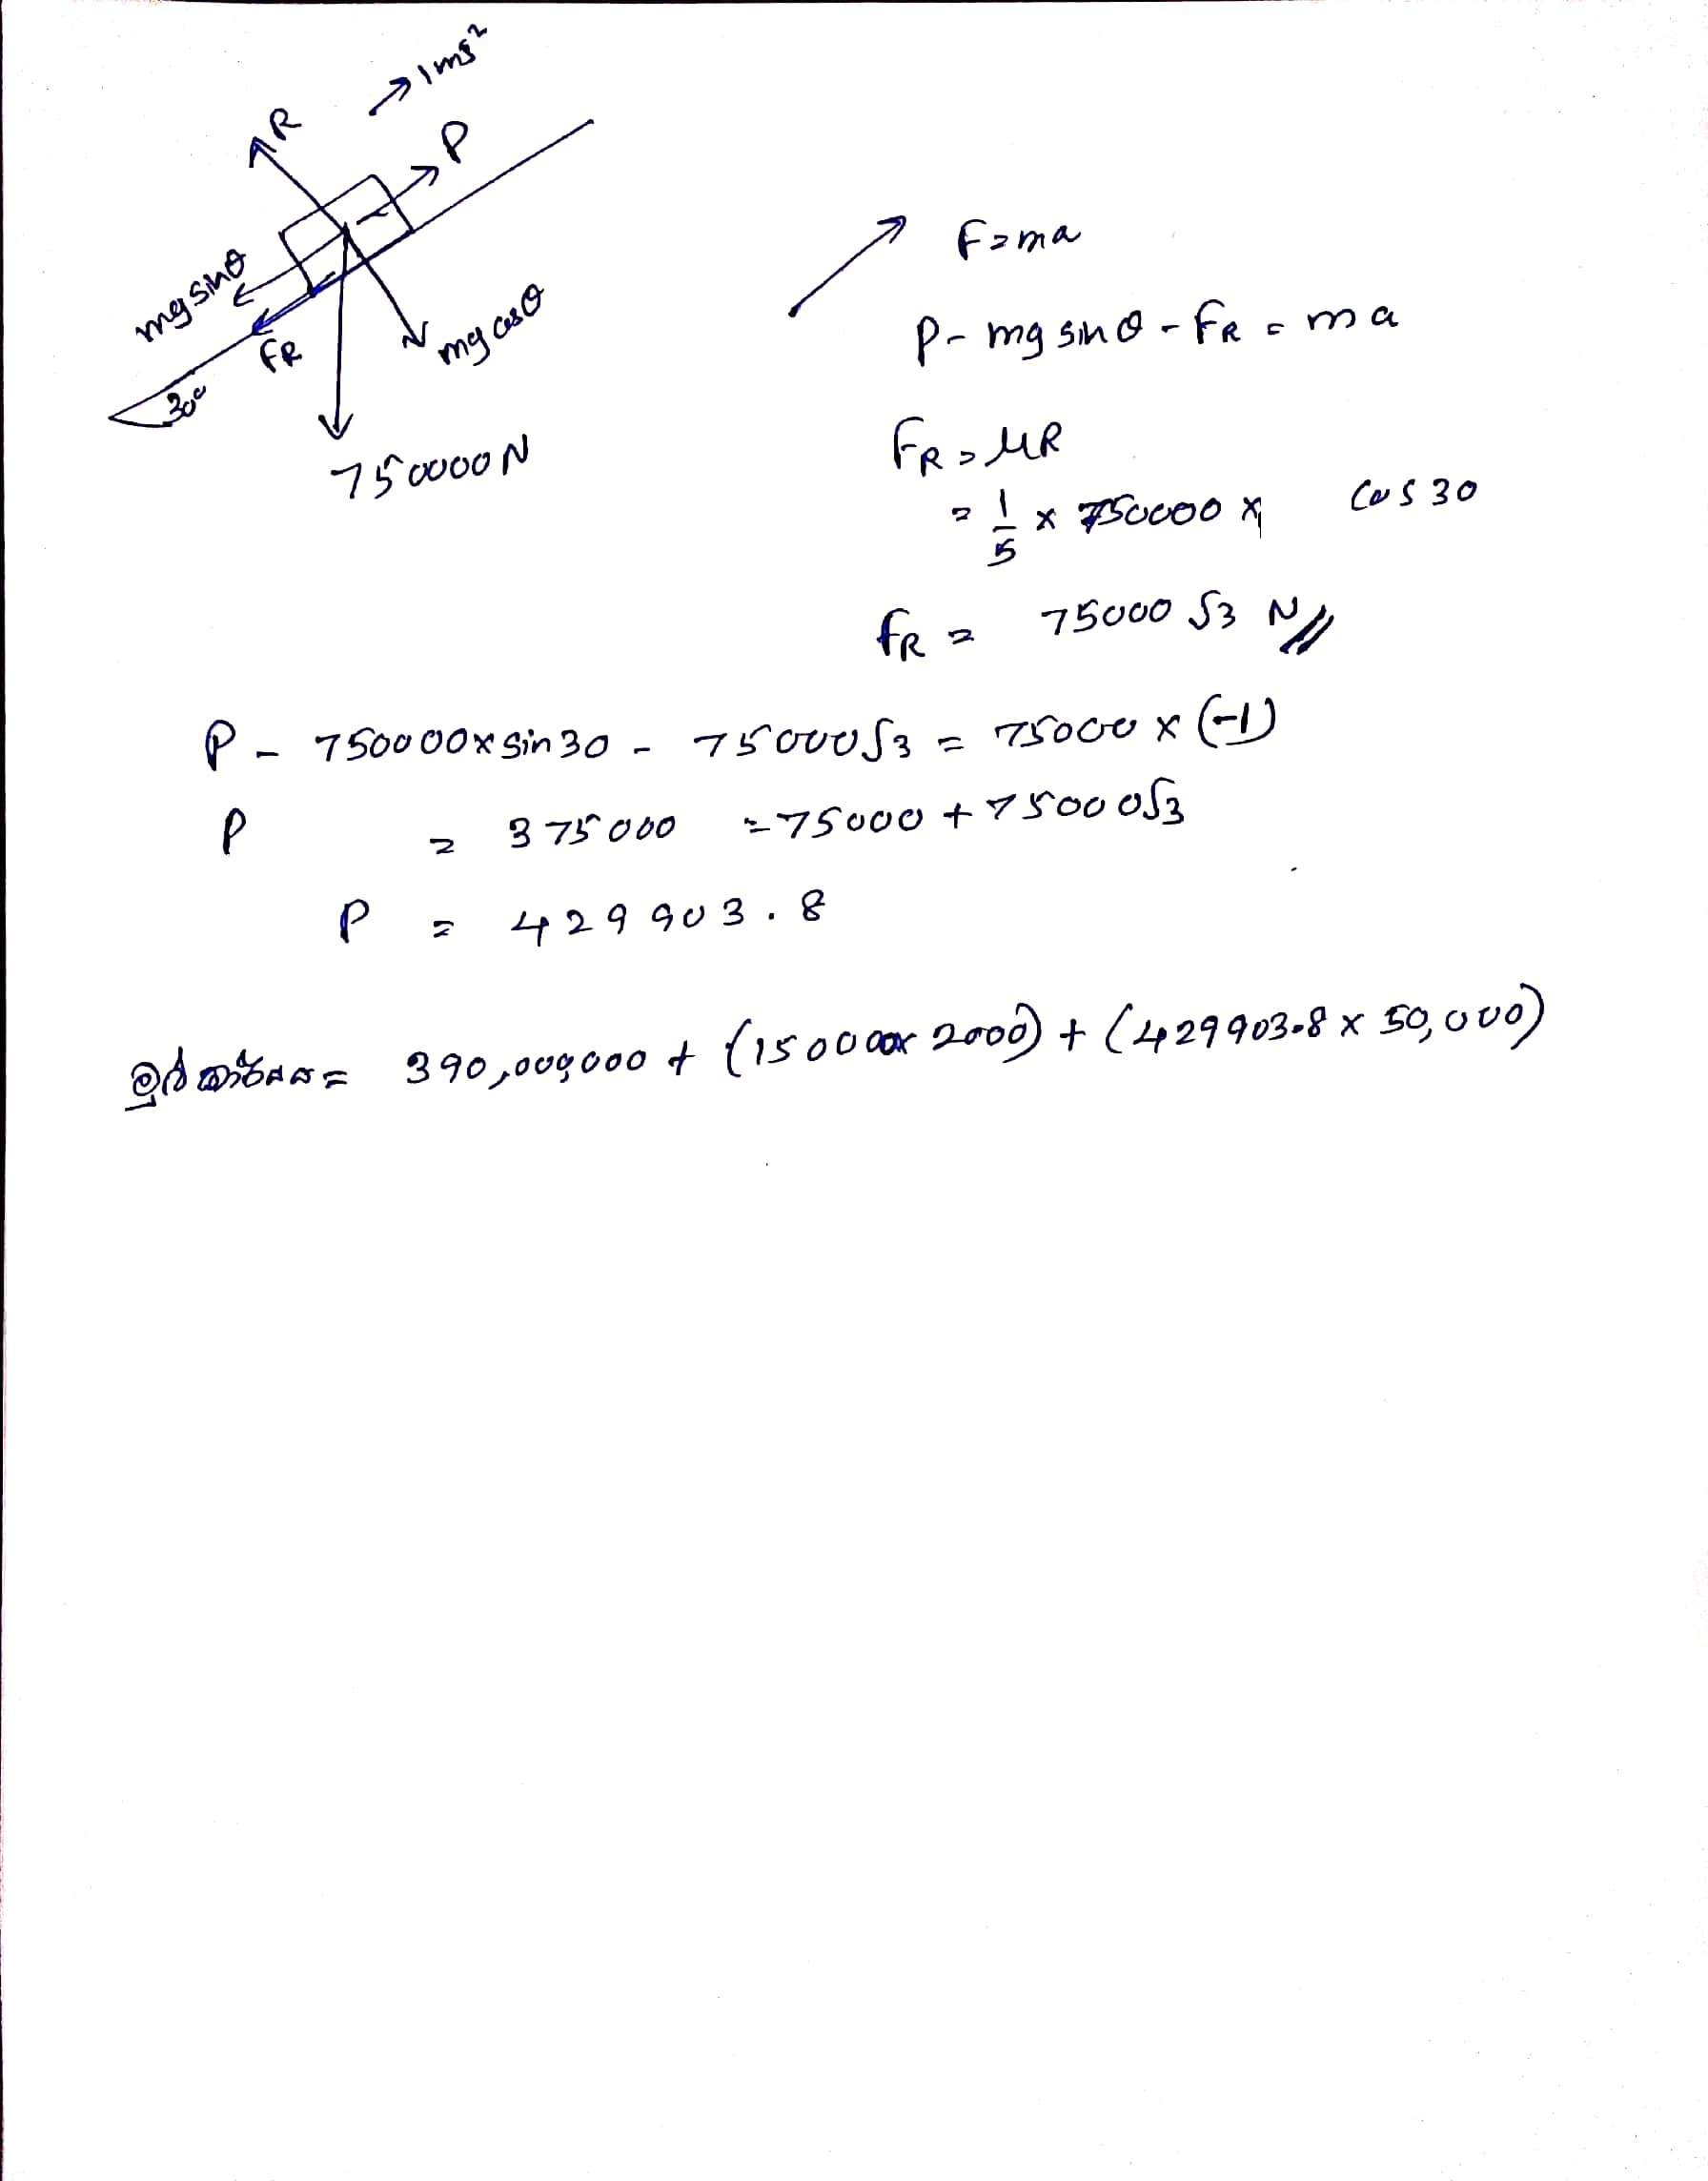 → 1ms²
R
P
mg sinθ
FR
mg cosθ
30°
750000N
F=ma
P - mg sinθ - FR = ma
FR = μR
= 1/5 × 750000 × cos 30
FR = 75000 √3 N//
P - 750000 × sin 30 - 75000√3 = 75000 × (-1)
P = 375000 - 75000 + 75000√3
P = 429903.8
මුළු කාර්යය = 390,000,000 + (150000 × 2000) + (429903.8 × 50,000)